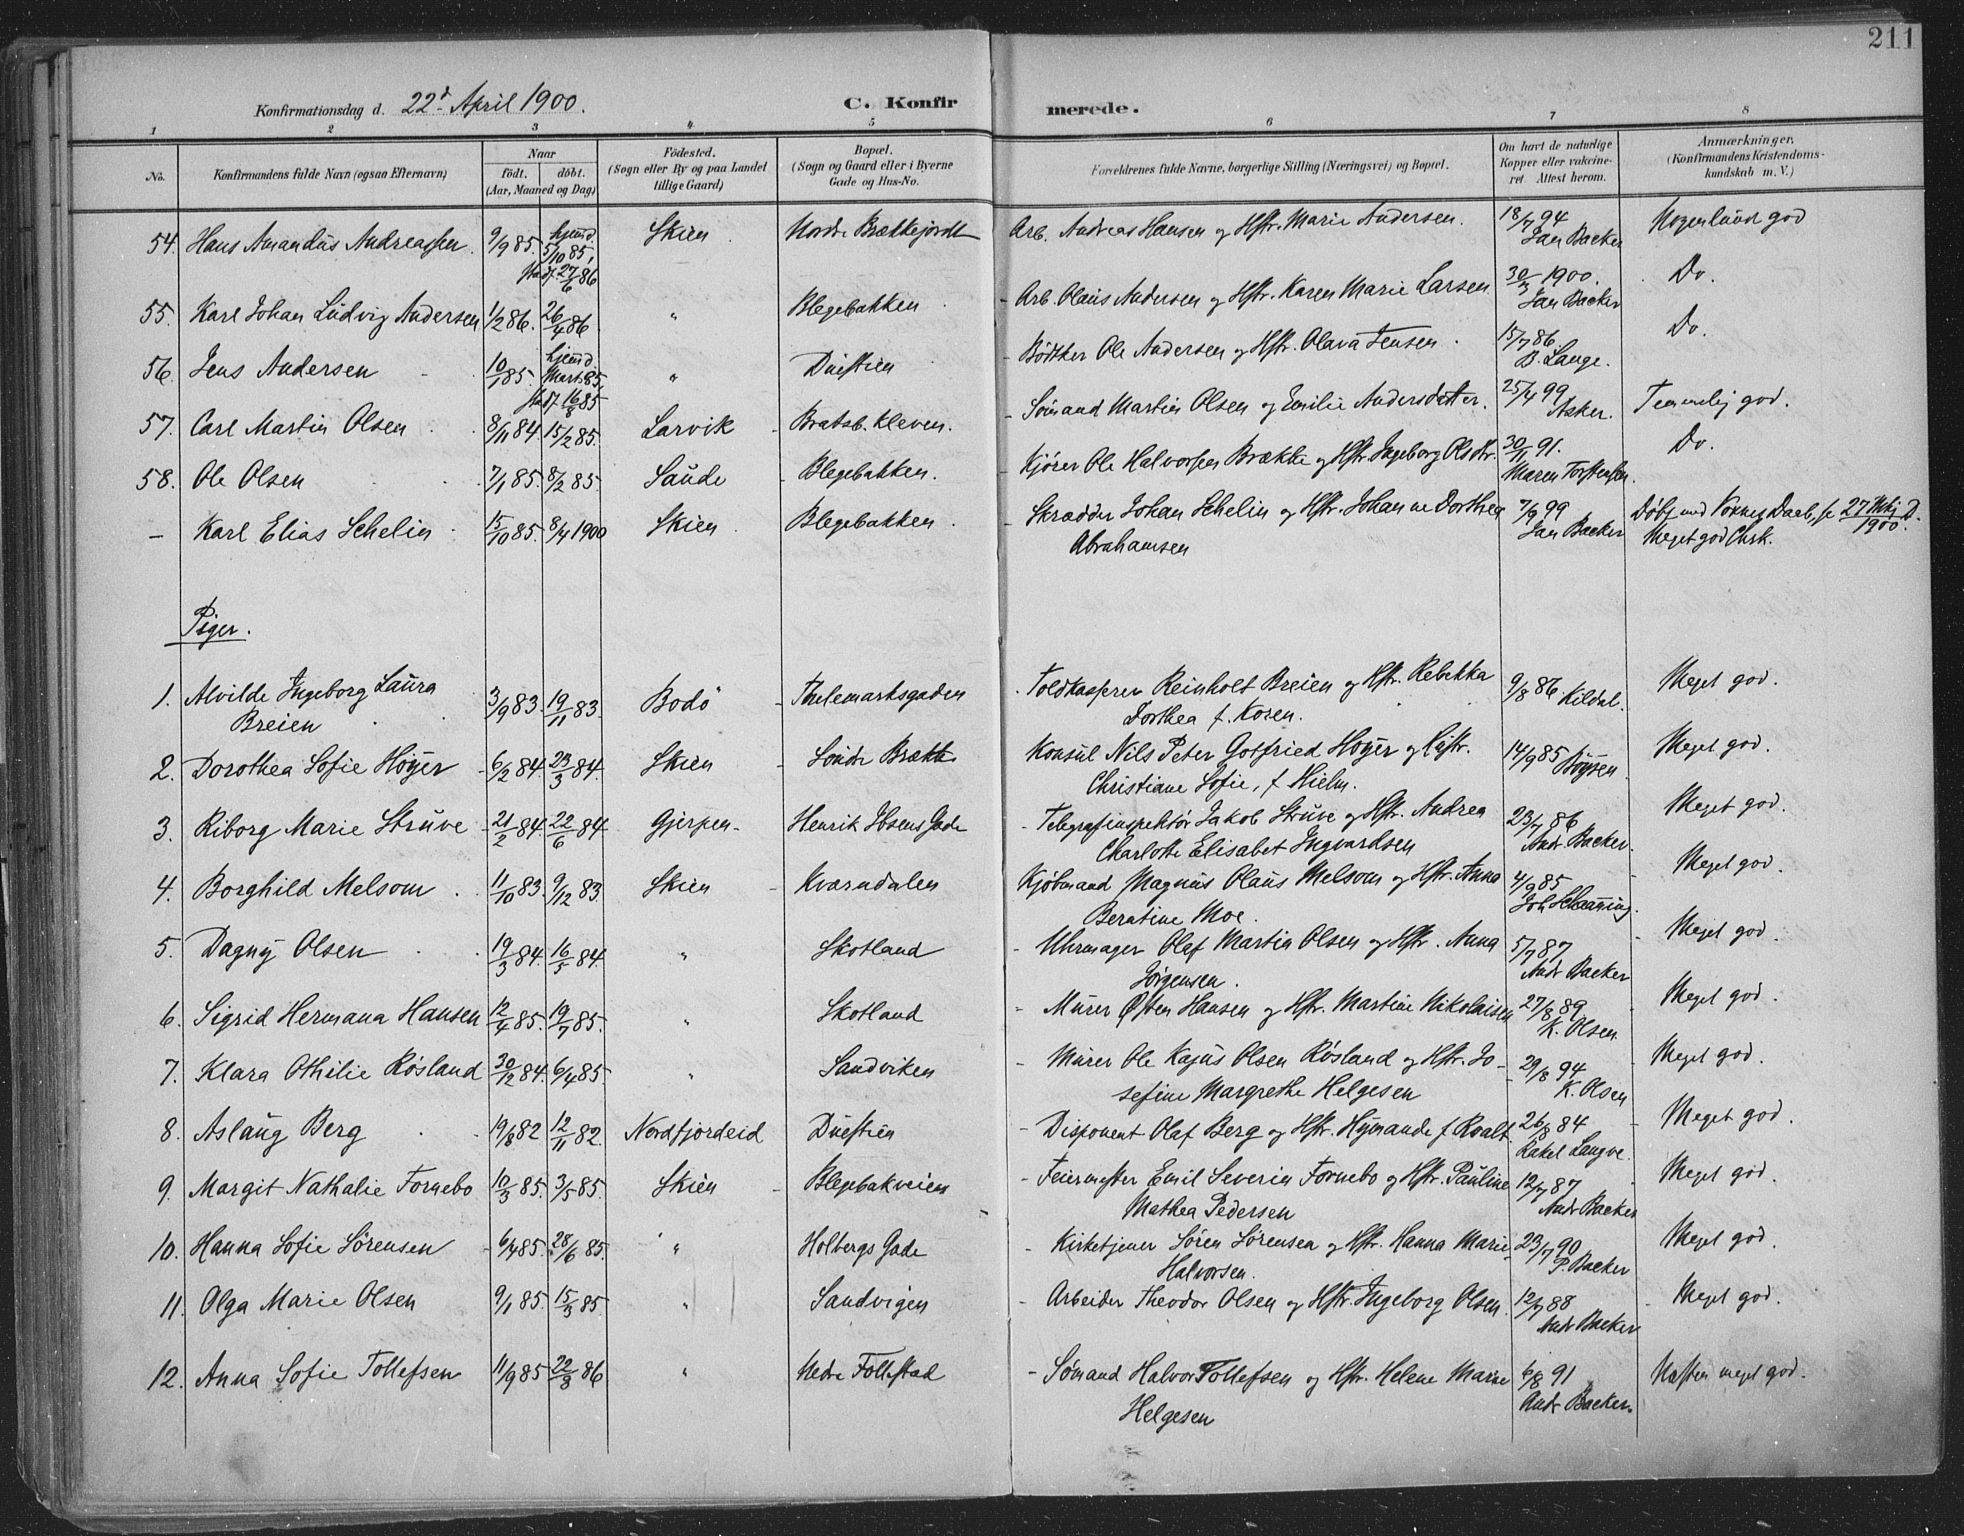 211
Konfirmationsdag d. 22d April 1900.
C. Konfirmerede.
1 2 3 4 5 6 7 8
No.
Konfirmandens fulde Navn (ogsaa Efternavn)
Naar
födt. döbt.
(Aar, Maaned og Dag)
Födested.
(Sogn eller By og paa Landet
tillige Gaard)
Bopæl.
(Sogn og Gaard eller i Byerne
Gade og Hus-No.
Forældrenes fulde Navne, borgerlige Stilling (Næringsvei) og Bopæl.
Om havt de naturlige
Kopper eller vaccineret
Attest herom.
Anmærkninger.
(Konfirmandens Kristendomskundskab
m. V.)
54. Hans Amandus Andreassen. 9/9 85. hjemd. 5/10 85, stadf. 27/6 86 Skien Nordre Brækkejordet Arb. Andreas Hansen og Hstr. Marie Andersen. 18/7 94 Jan Backer Nogenlund god
55. Karl Johan Ludvig Andersen 1/2 86. 26/4 86 " Blegebakken - Arb. Olaus Andersen og Hstr. Karen Marie Larsen 30/3 1900. Jan Backer Do.
56. Jens Andersen 10/1 85. hjemd. Mart. 85, stadf. 16/8 85 " Duestien - Bödtker Ole Andersen og Hstr. Olava Jensen. 15/7 86 B. Lange. Do.
57. Carl Martin Olsen 8/11 84 15/2 85. Larvik - Bratsb. kleven. - Sömand Martin Olsen og Emilie Andersdatter. 25/4 99 Asker. Temmelig god.
58. Ole Olsen 7/1 85. 8/2 85. Saude - Blegebakken. - Kjörer Ole Halvorsen Brække og Hstr. Ingeborg Olsdtr. 30/11 91. Maren Torstensen. Do.
- Karl Elias Schelin 15/10 85. 8/4 1900 Skien - Blegebakken. - Skrædder Johan Schelin og Hstr. Johanne Dorthea
Abrahamsen 7/9 99 Jan Backer Meget god Chrk.
Piger.
1. Alvilde Ingeborg Laura
Breien 3/9 83. 19/11 83. Bodö - Thelemarksgaden - Toldkasserer Reinholt Breien og Hstr. Rebekka
Dorthea f. Koren. 9/8 86 Kildal. Meget god.
2. Dorothea Sofie Höyer 6/2 84 23/3 84. Skien - Söndre Brække Konsul Nils Peter Gotfried Höyer og Hstr.
Christiane Sofie, f Hielm. 14/9 85 Boysen. Meget god.
3. Riborg Marie Struve 21/2 84. 22/6 84 Gjerpen - Henrik Ibsens Gade - Telegrafinspektör Jakob Struve og Hstr. Andrea
Charlotte Elisabet Ingvardsen 23/7 86 Andr Backer. Meget god.
4. Borghild Melsom 11/10 83. 9/12 83. Skien - Kværndalen Kjöbmand Magnus Olaus Melsom og Hstr. Anna
Beratine Moe. 4/9 85 Joh Schaaning. Meget god.
5. Dagny Olsen 19/3 84. 16/5 84. " Skotland - Uhrmager Olaf Martin Olsen og Hstr. Anna
Jörgensen. 5/7 87 Andr Backer Meget god.
6. Sigrid Hermana Hansen 12/4 85. 19/7 85. " Skotland - Murer Østen Hansen og Hstr. Martine Nikolaisen 27/8 89 K. Olsen. Meget god.
7. Klara Othilie Røsland 30/12 84. 6/4 85. " Sandviken - Murer Ole Kajus Olsen Røsland og Hstr. Josefine
Margrethe Helgesen 29/8 94 K. Olsen Meget god.
8. Aslaug Berg 19/8 82 12/11 82. Nordfjordeid Duestien - Disponent Olaf Berg og Hstr. 26/8 84 Rakel Langve. Meget god.
9. Margit Nathalie Fornebo 10/3 85. 3/5 85. Skien - Blegebakveien - Feiermester Emil Severin Fornebo og Hstr. Pauline
Mathea Pedersen 12/7 87 Andr Backer Meget god.
10. Hanna Sofie Sörensen 6/4 85. 28/6 85. " Holbergs Gade - Kirketjener Sören Sörensen og Hstr. Hanna Marie
Halvorsen. 23/7 90 P. Backer Meget god.
11. Olga Marie Olsen 9/1 85. 15/3 85 " Sandvigen - Arbeider Theodor Olsen og Hstr. Ingeborg Olsen. 12/7 88 Andr Backer Meget god.
12. Anna Sofie Tollefsen 11/9 85 22/3 86 " Nedre Follestad - Sömand Halvor Tollefsen og Hstr. Helene Marie
Helgesen 6/8 91 Andr Backer. Næsten meget god.